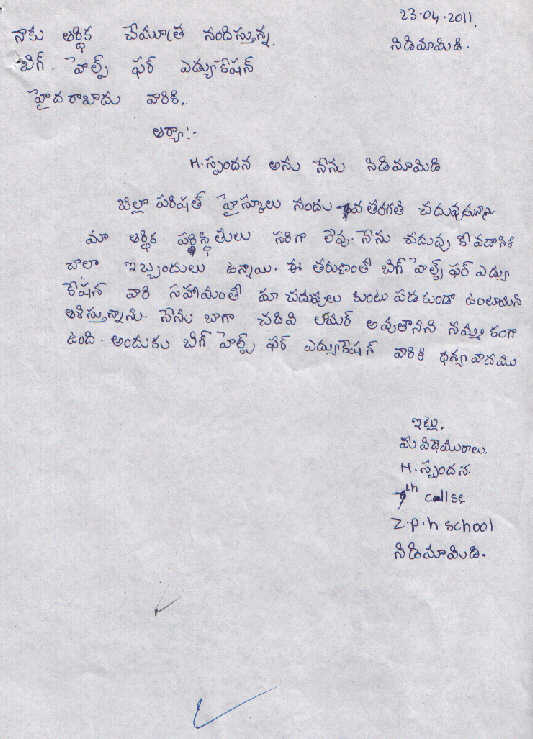 23.04.2011.
నాకు ఆర్థిక చేయూత నందిస్తున్న
నిడిమామిడి.
బిగ్ హెల్ప్ ఫర్ ఎడ్యుకేషన్
హైదరాబాదు వారికి.
ఆర్యా!-
H.స్పందన అను నేను నిడిమామిడి
జిల్లా పరిషత్ హైస్కూలు నందు 9వ తరగతి చదువుచున్నాను
మా ఆర్థిక పరిస్థితులు సరిగా లేవు. నేను చదువు కోవడానికి
చాలా ఇబ్బందులు ఉన్నాయి. ఈ తరుణంతో బిగ్ హెల్ప్ ఫర్ ఎడ్యు
కేషన్ వారి సహాయంతో మా చదువులు కుంటు పడకుండా ఉంటాయని
ఆశిస్తున్నాను. నేను బాగా చదివి అవుతానని నమ్మకంగా
ఉంది. అందుకు బిగ్ హెల్ప్ ఫర్ ఎడ్యుకేషన్ వారికి ధన్యవాదము
ఇట్లు,
మీ విధేయురాలు.
H.స్పందన.
9th callse
Z.p.h school
నిడిమామిడి.